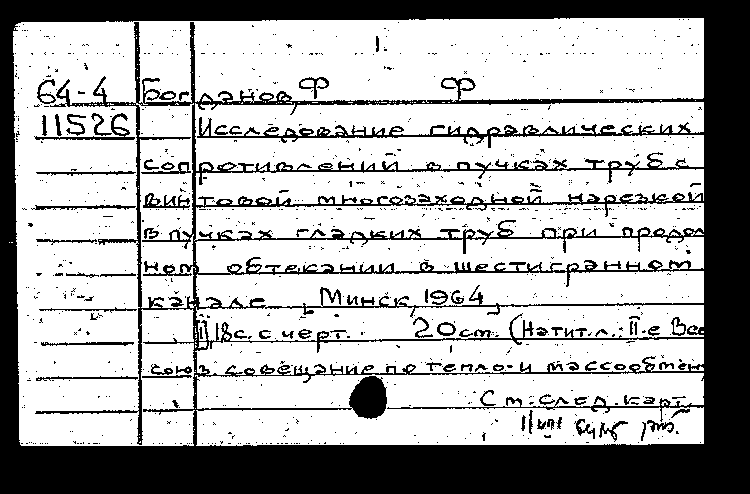 1.
64-4 Богданов, Ф Ф
11526 Исследование гидравлических
сопротивлений в пучках труб с
винтовой многозаходной нарезкой
в пучках гладких труб при продол
ном обтекании в шестигранном
канале [Минск, 1964]
[1], 18с. с черт. 20см. (На тит.л.: II-е Все
союз. совещание по тепло- и массообмен
См. след. карт.